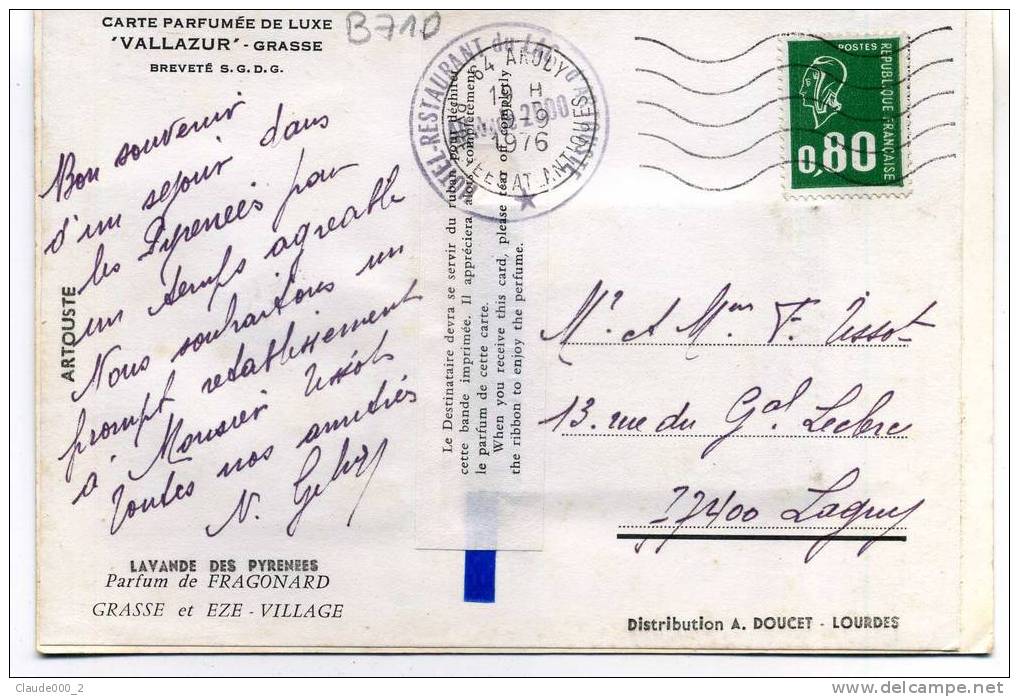 CARTE PARFUMÉE DE LUXE
'VALLAZUR' - GRASSE
BREVETÉ S.G.D.G.
B710
Bon souvenir
d'un sejour dans
les Pyrenées par
un temps agreable
Nous souhaitons un
prompt retablissement
à Monsieur Tissot
Toutes nos amitiés
N.
ARTOUSTE
LAVANDE DES PYRENEES
Parfum de FRAGONARD
GRASSE et EZE - VILLAGE
HOTEL-RESTAURANT du LAC d'ARTOUSTE
64 ARUDY
PYRENEES ATLANTIQUES
1976
Le Destinataire devra se servir du ruban pour déchirer
cette bande imprimée. Il appréciera alors complètement
le parfum de cette carte.
When you receive this card, please tear off completly
the ribbon to enjoy the perfume.
POSTES
REPUBLIQUE FRANÇAISE
0,80
Mr et Mme F. Tissot
13 rue du Gal Leclerc
77400 Lagny
Distribution A. DOUCET - LOURDES
Claude000_2
www.delcampe.net